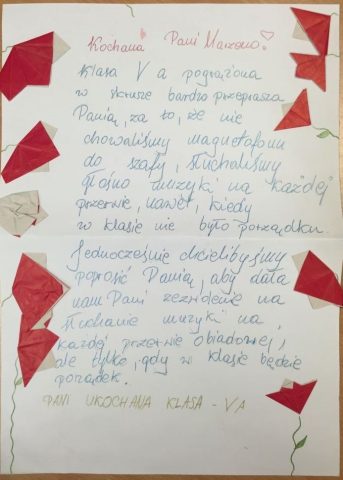 Kochana Pani Marzeno!
Klasa V a pogrążona
w skrusze bardzo przeprasza
Panią, za to, że nie
chowaliśmy magnetofonu
do szafy, słuchaliśmy
głośno muzyki na każdej
przerwie, nawet, kiedy
w klasie nie było porządku.
Jednocześnie chcielibyśmy
poprosić Panią, aby dała
nam Pani zezwolenie na
słuchanie muzyki na
każdej przerwie obiadowej,
ale tylko, gdy w klasie będzie
porządek.
PANI UKOCHANA KLASA - VA